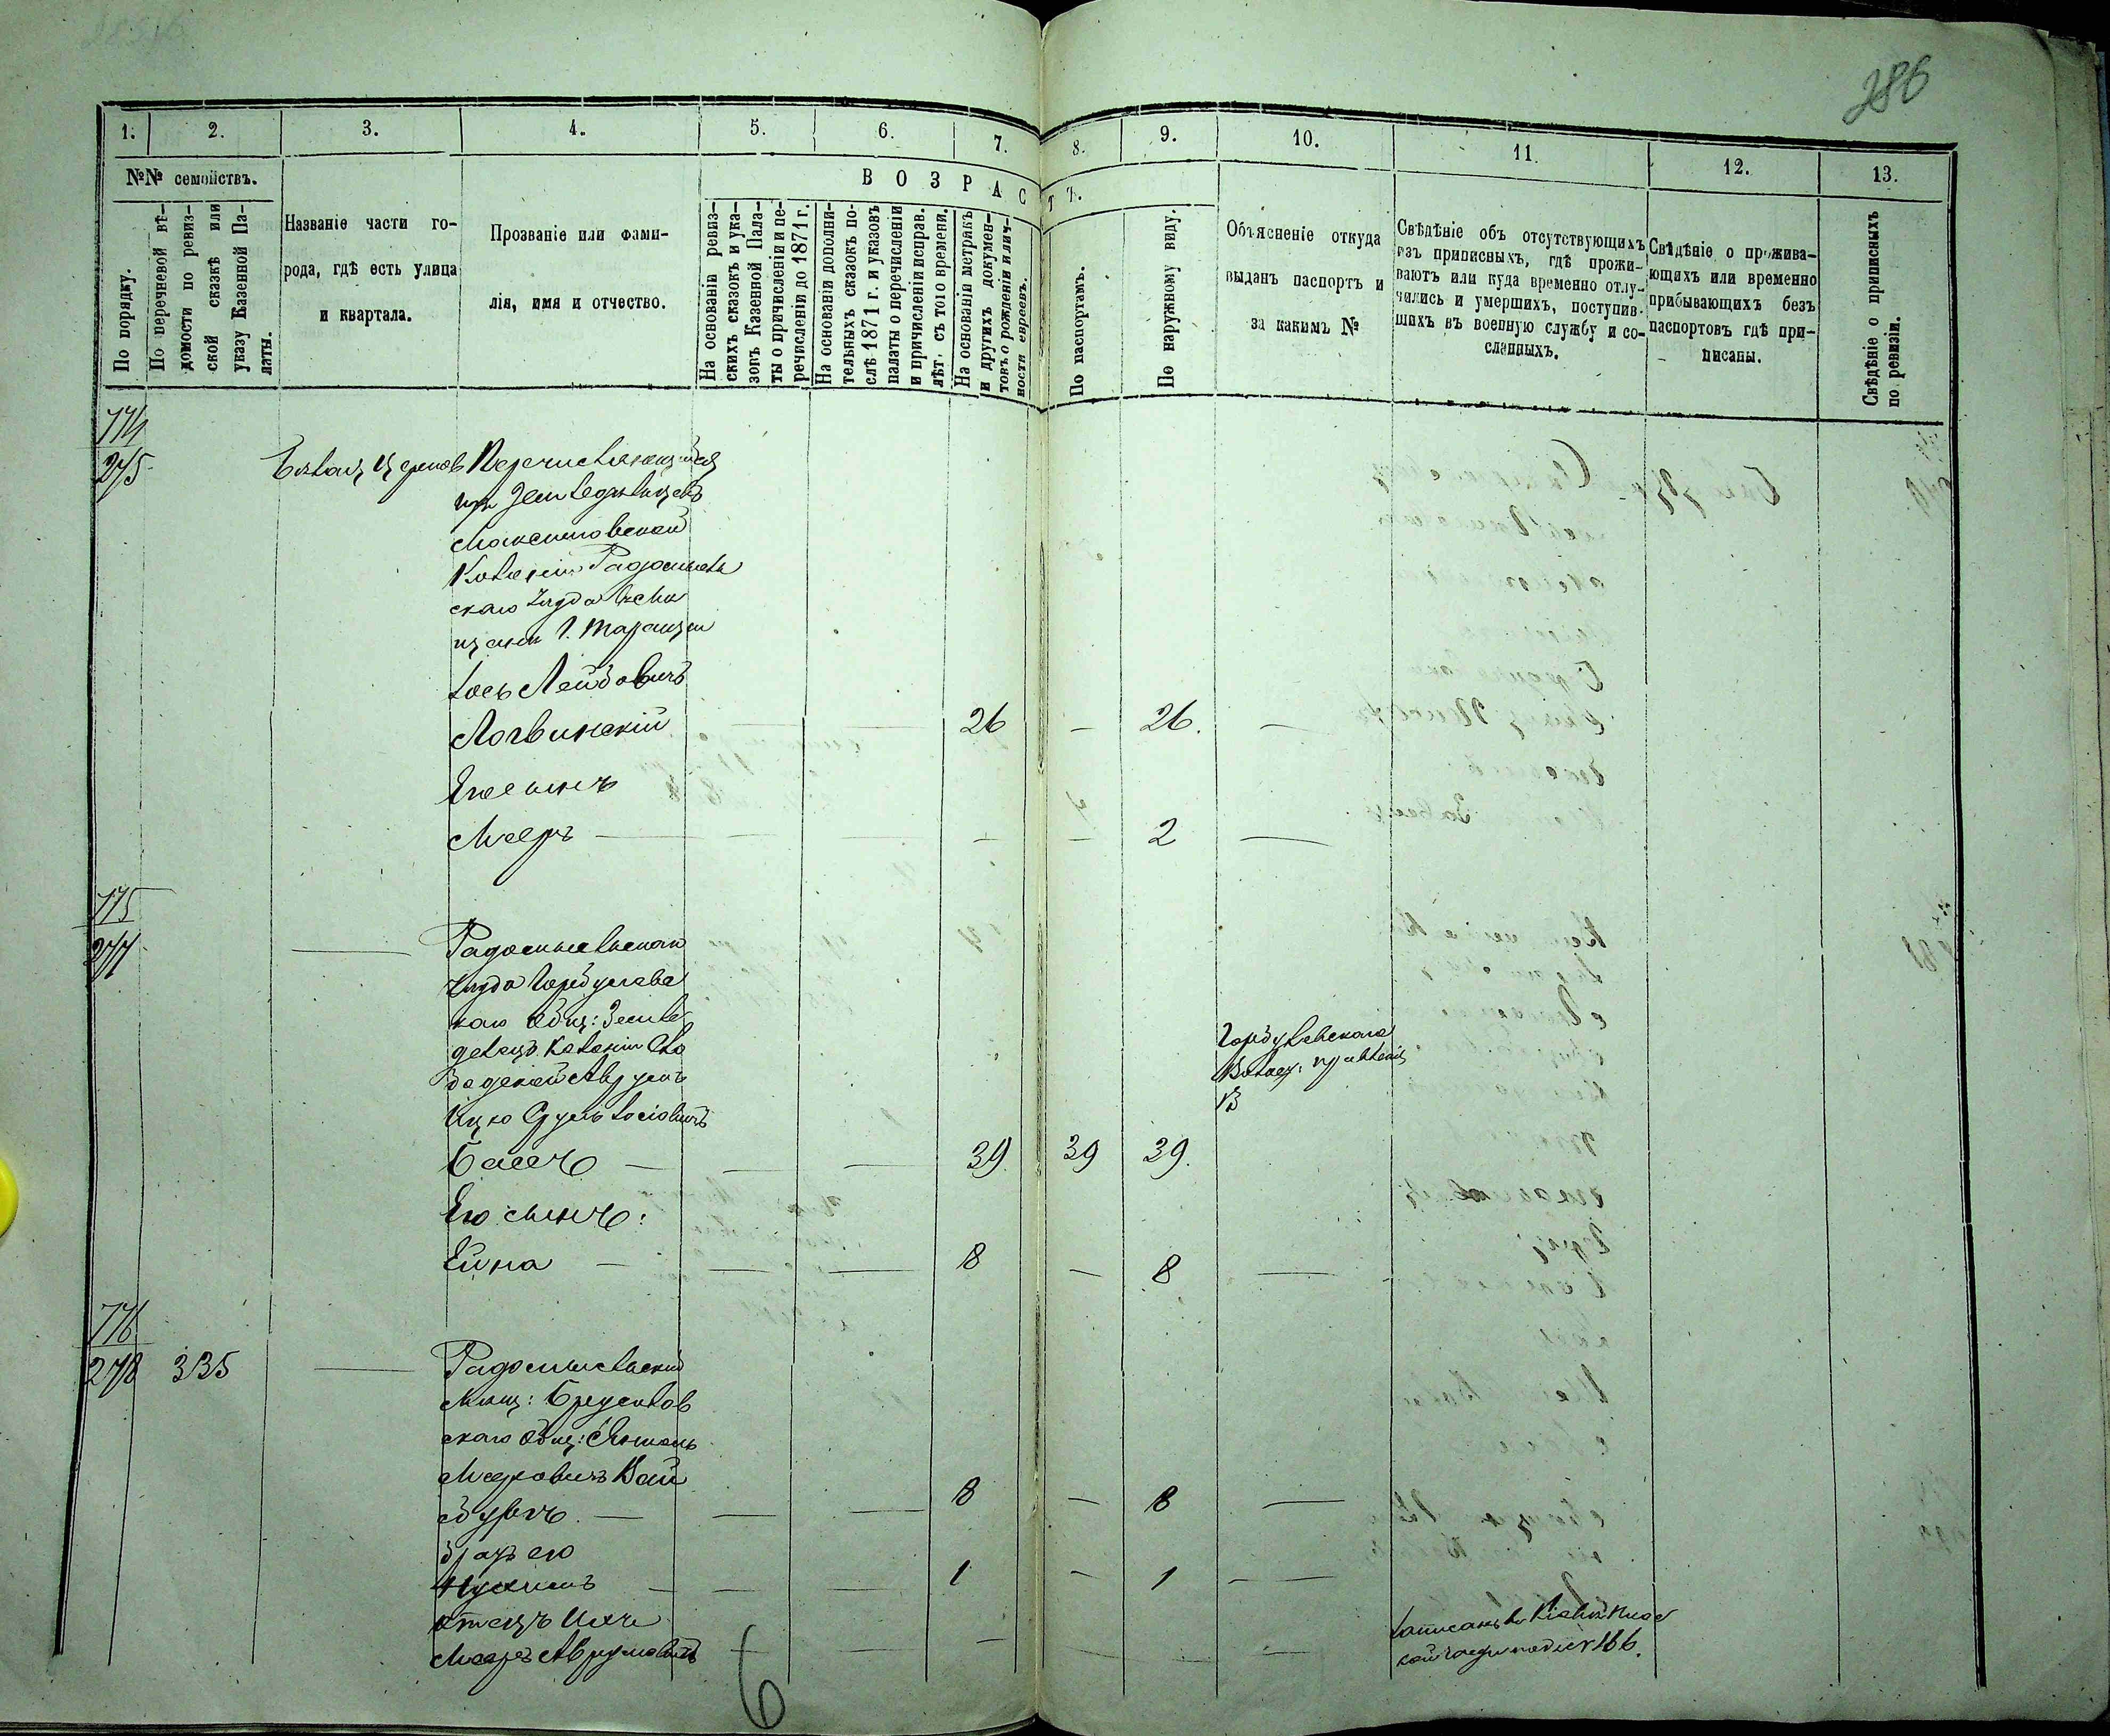 286
1. 2. 3. 4. 5. 6. 7. 8. 9. 10. 11. 12. 13.
№№ семействъ.
ВОЗРАСТЪ.
По порядку.
По перечневой вѣ-
домости по ревиз-
ской сказкѣ или
указу Казенной Па-
латы.
Названіе части го-
рода, гдѣ есть улица
и квартала.
Прозваніе или фами-
лія, имя и отчество.
На основаніи ревиз-
скихъ сказокъ и ука-
зовъ Казенной Пала-
ты о причисленіи и пе-
речисленіи до 1871 г.
На основаніи дополни-
тельныхъ сказокъ по-
слѣ 1871 г. и указовъ
палаты о перечисленіи
и причисленіи исправ.
лѣт. съ того времени.
На основаніи метрикъ
и другихъ докумен-
товъ о рожденіи и лич-
ности евреевъ.
По паспортамъ.
По наружному виду.
Объясненіе откуда
выданъ паспортъ и
за какимъ №
Свѣдѣніе объ отсутствующихъ
изъ приписныхъ, гдѣ прожи-
ваютъ или куда временно отлу-
чились и умершихъ, поступив-
шихъ въ военную службу и со-
сланныхъ.
Свѣдѣніе о прожива-
ющихъ или временно
прибывающихъ безъ
паспортовъ гдѣ при-
писаны.
Свѣдѣніе о приписныхъ
по ревизіи.
774
275 Церковь Перечисляющийся
изъ Земледѣльцевъ
Максимовской
Колоніи Радомысль
скаго уѣзда въ Мѣ
щане Г. Таращи
Іось Лейбовичъ
Логвинскій — — 26 — 26. —
Его сынъ
Мееръ — — — — — 2 —
775
277 — Радомысльскаго
уѣзда Горбулевс
каго общ: Земле
делецъ Колоніи Сло
бодской Аврумъ
Ицко Сруль Іосіовичъ
Горбулевскаго
Волост: правленія
Басъ — — — 39 39 39.
Его сынъ:
Ейна — — — 8 — 8 —
776
278 335 — Радомысльскій
Мѣщ: Брусилов
скаго общ:
Мееровичъ Вай
бухъ. — — — 8 — 8 —
братъ его
Нухимъ — — — 1 — 1 —
отецъ ихъ
Мееръ Аврумовичъ — — — — —
6